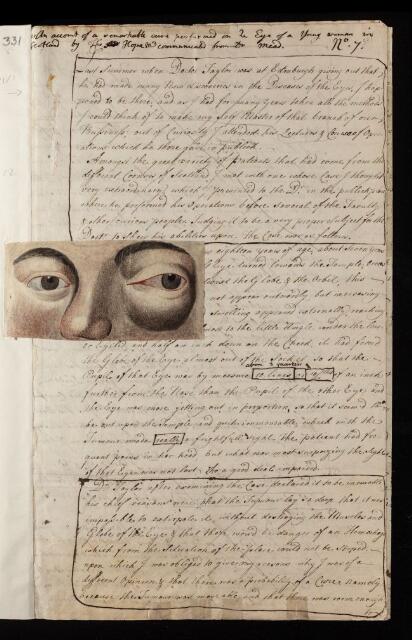 331
An account of a remarkable cure performed on the Eye of a Young woman in
Scotland by Tho. Hope M.D. communicated from Dr. Mead. No. 7.
Last Summer when Doctor Taylor was at Edinburgh giving out that
he had made many New discoveries in the Diseases of the Eye, I hap-
pened to be there, and as I had for many years taken all the methods
I could think of to make my self Master of that branch of our
Business; out of Curiosity I attended his Lectures & Courses of Oper-
ations which he there gave in publick.
Amongst the great variety of patients that had come from the
different Corners of Scotland I met with one whose Case I thought
very extraordinary, which I presented to the Dr. in the publick
where he performed his Operations before Several of the Faculty
& other curious people, Judging it to be a very proper subject for the
Doctr. to shew his abilities upon. The Case was as follows.
eighteen years of age, about
Eye turned towards the Temple,
the Globe & the Orbit, this
not appear outwardly but increasing
swelling appeared externally, reaching
to the little Angle, under the
Eyelid and half an inch down on the Cheek, it had forced
the Globe of the Eye almost out of the Socket so that the
above 3 quarters
Pupil of that Eye was by measure 10 lines of an inch
further from the Nose than the Pupil of the other Eye, and
the Eye was more jetting out in proportion, so that it seem'd to
be out upon the Temple and quite immoveable, which with the
Tumour made really a frightfull sight. the patient had fre-
quent pains in her head but what was most surprizing the sight
of that Eye was not lost, tho a good deal impaired.
Dr. Taylor after examining the Case declared it to be incurable
his chief reasons were, that the Tumour lay so deep that it was
impossible to extirpate it, without destroying the Muscles and
Globe of the Eye & that there would be danger of an Hemorhage
which from the Situation of the place could not be stoped
upon which I was obliged to give my reasons why I was of a
different Opinion & that there was a probability of a Cure: namely
because the Tumour was moveable, and that there was room enough